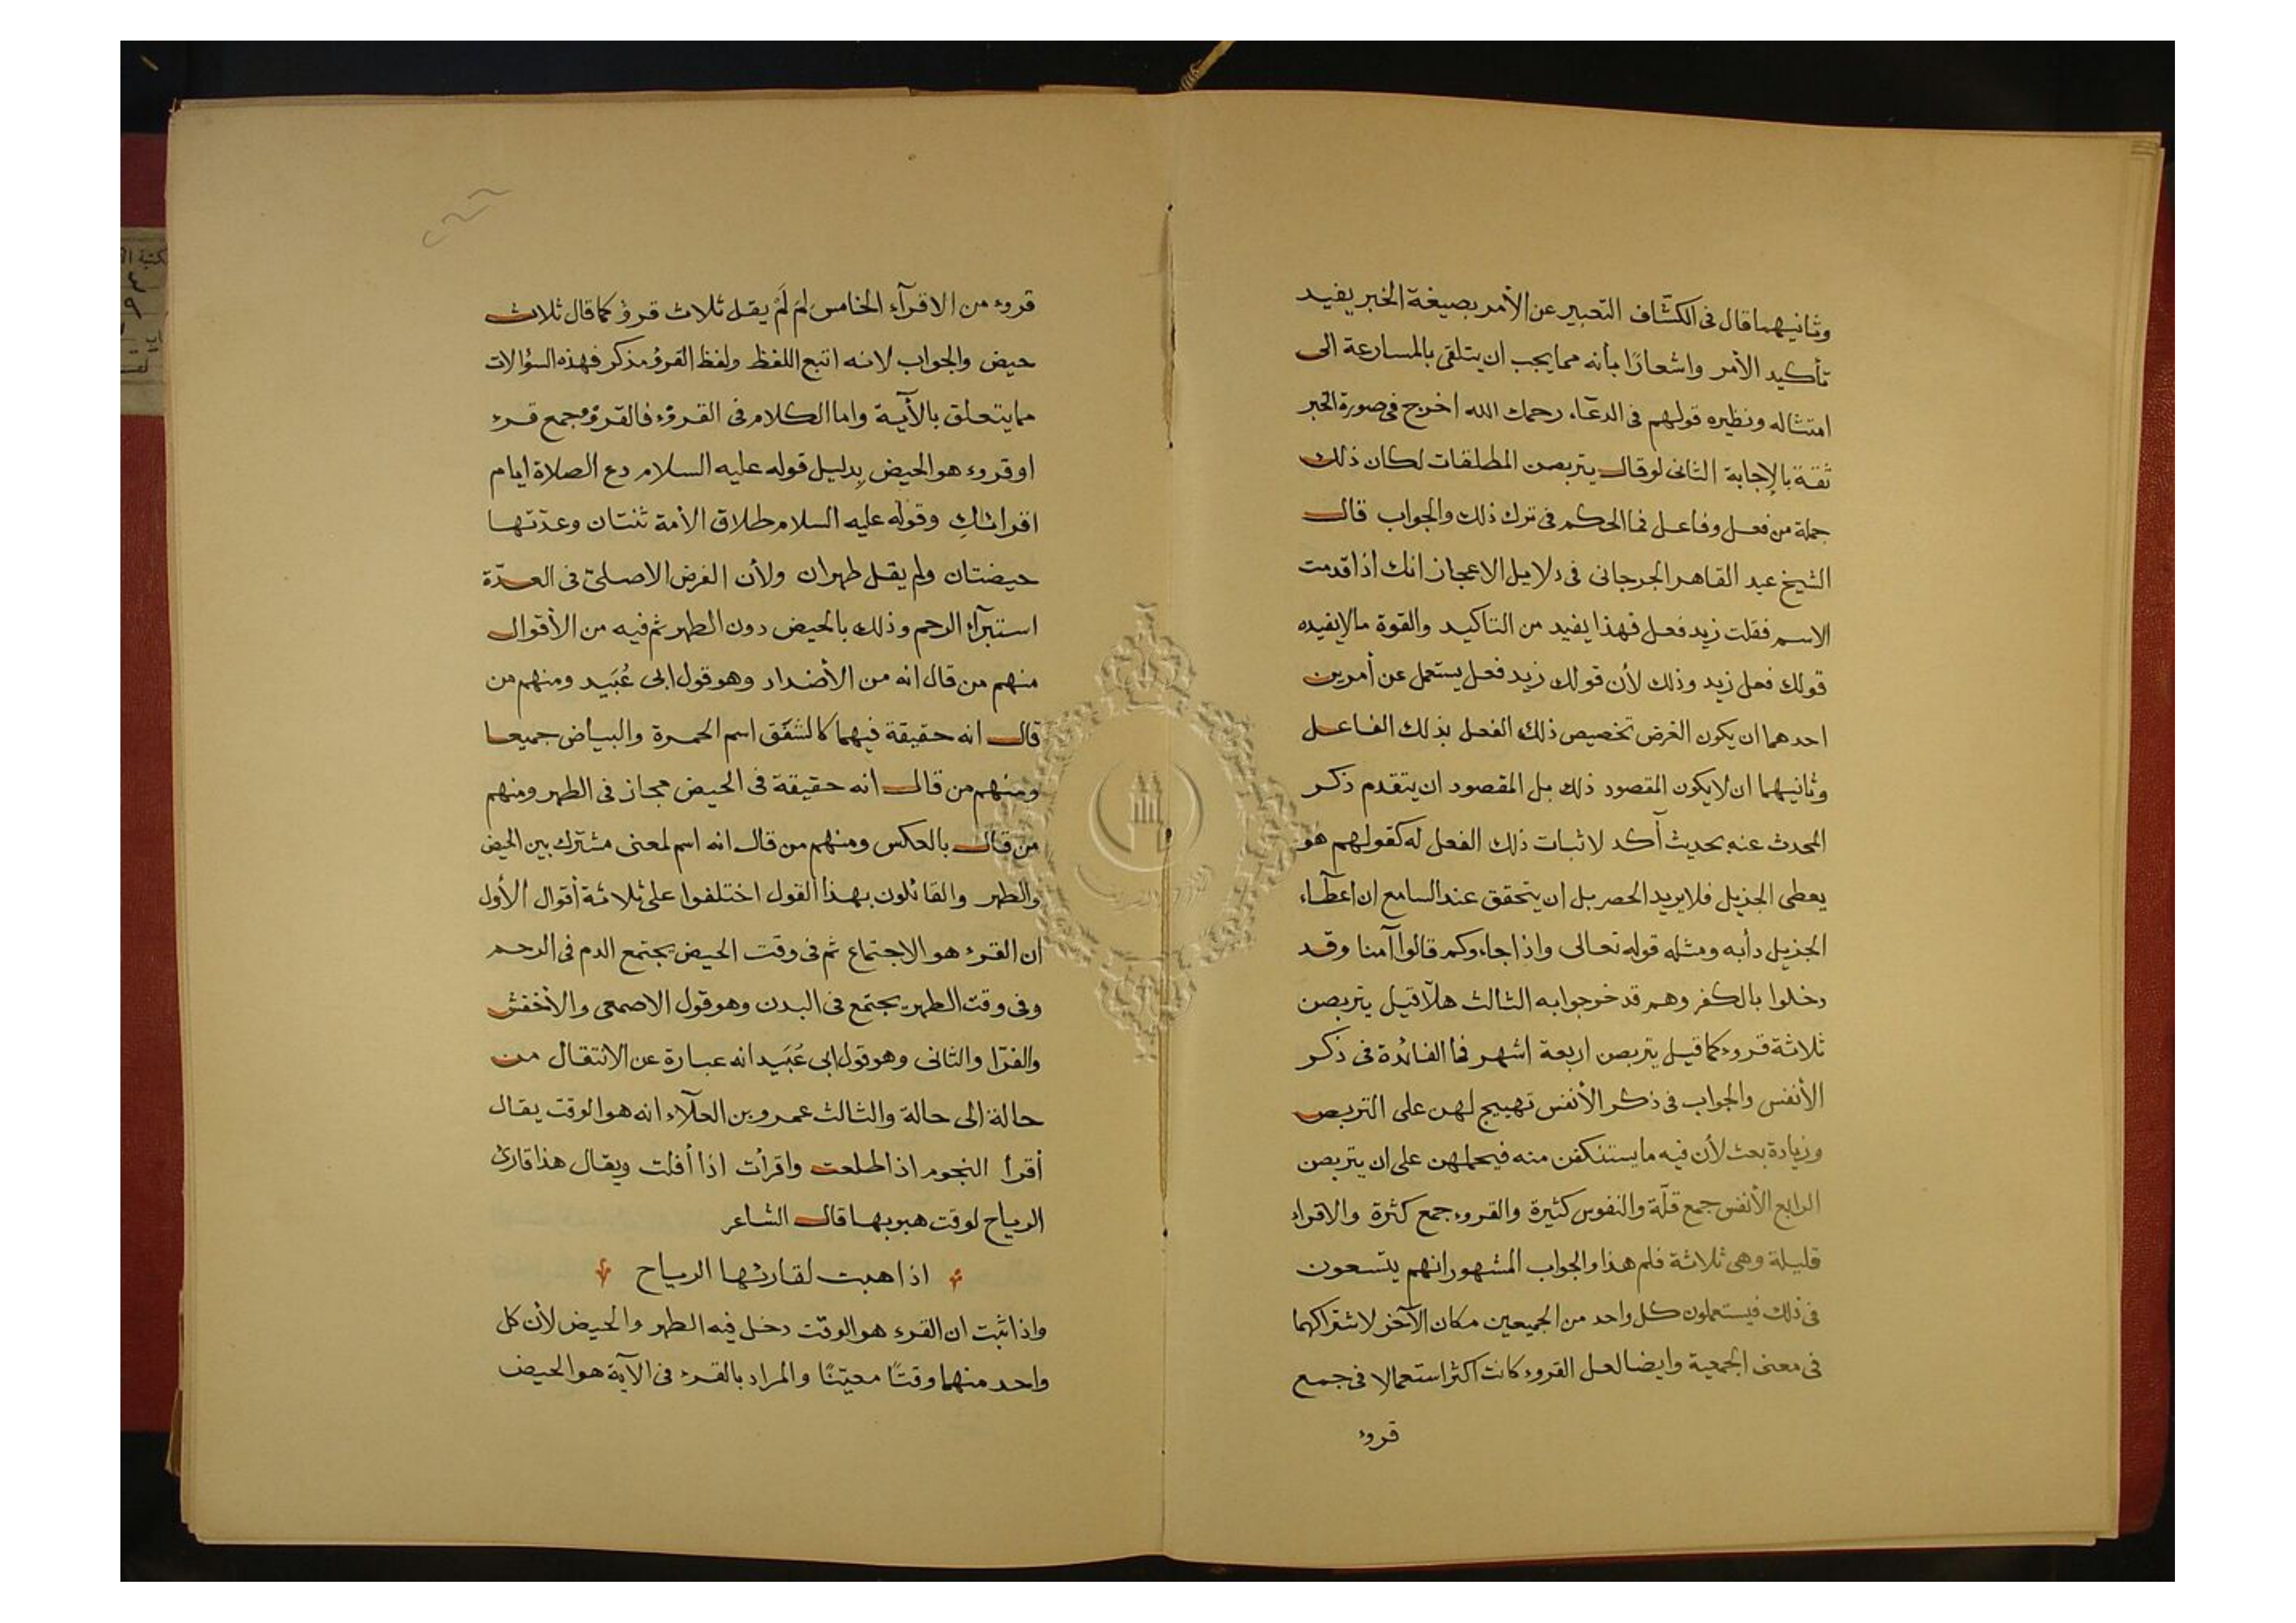 وثانيهما قال فى الكشّاف التعبير عن الأمر بصيغة الخبر يفيد
تأكيد الأمر واشعارًا بأنه مما يجب ان يتلقى بالمسارعة الى
امتثاله ونظيره قولهم فى الدعآء رحمك الله اخرج فى صورة الخبر
ثقة بالإجابة الثانى لو قال يتربصن المطلقات لكان ذلك
جملة من فعل وفاعل فما الحكم فى ترك ذلك والجواب قال
الشيخ عبد القاهر الجرجانى فى دلايل الاعجاز انك اذا قدمت
الاسم فقلت زيد فعل فهذا يفيد من التاكيد والقوة مالا يفيده
قولك فعل زيد وذلك لأن قولك زيد فعل يستعمل عن أمرين
احدهما ان يكون الغرض تخصيص ذلك الفعل بذلك الفاعل
وثانيهما ان لا يكون المقصود ذلك بل المقصود ان يتقدم ذكر
المحدث عنه بحديث أكد لاثبات ذلك الفعل له كقولهم هو
يعطى الجزيل فلا يريد الحصر بل ان يتحقق عند السامع ان اعطآء
الجزيل دأبه ومثله قوله تعالى واذا جاءوكم قالوا آمنا وقد
دخلوا بالكفر وهم قد خرجوا به الثالث هلّا قيل يتربصن
ثلاثة قروء كما قيل يتربصن اربعة اشهر فما الفائدة فى ذكر
الأنفس والجواب فى ذكر الأنفس تهييج لهن على التربص
وزيادة بعث لأن فيه ما يستنكفن منه فيحملهن على ان يتربصن
الرابع الأنفس جمع قلّة والنفوس كثيرة والقروء جمع كثرة والاقراء
قليلة وهى ثلاثة فلم هذا والجواب المشهور انهم يتسعون
فى ذلك فيستعملون كل واحد من الجميعين مكان الآخر لاشتراكهما
فى معنى الجمعية وايضا لعل القروء كانت اكثر استعمالا فى جمع
قروء
قروء من الاقرآء الخامس لِمَ لَمْ يقل ثلاث قروء كما قال ثلاث
حيض والجواب لانه اتبع اللفظ ولفظ القرؤ مذكر فهذه السؤالات
ما يتعلق بالآية واما الكلام فى القروء فالقرؤ جمع قرء
او قروء هو الحيض بدليل قوله عليه السلام دع الصلاة ايام
اقرائكِ وقوله عليه السلام طلاق الأمة ثنتان وعدّتها
حيضتان ولم يقل طهران ولأن الغرض الاصلىّ فى العدّة
استبرآء الرحم وذلك بالحيض دون الطهر ثم فيه من الأقوال
منهم من قال انه من الأضداد وهو قول ابى عُبَيد ومنهم من
قال انه حقيقة فيهما كالشفَق اسم الحمرة والبياض جميعا
ومنهم من قال انه حقيقة فى الحيض مجاز فى الطهر ومنهم
من قال بالعكس ومنهم من قال انه اسم لمعنى مشترك بين الحيض
والطهر والقائلون بهذا القول اختلفوا على ثلاثة أقوال الأول
ان القرء هو الاجتماع ثم فى وقت الحيض يجتمع الدم فى الرحم
وفى وقت الطهر يجتمع فى البدن وهو قول الاصمعى والأخفش
والفرّا والثانى وهو قول ابى عُبَيد انه عبارة عن الانتقال من
حالة الى حالة والثالث عمرو بن العلآء انه هو الوقت يقال
أقرأ النجوم اذا طلعت واقرأت اذا أفلت ويقال هذا قارئ
الرياح لوقت هبوبها قال الشاعر
اذا هبت لقارئها الرياح
واذا ثبت ان القرء هو الوقت دخل فيه الطهر والحيض لأن كل
واحد منهما وقتًا معيّنًا والمراد بالقرء فى الآية هو الحيض